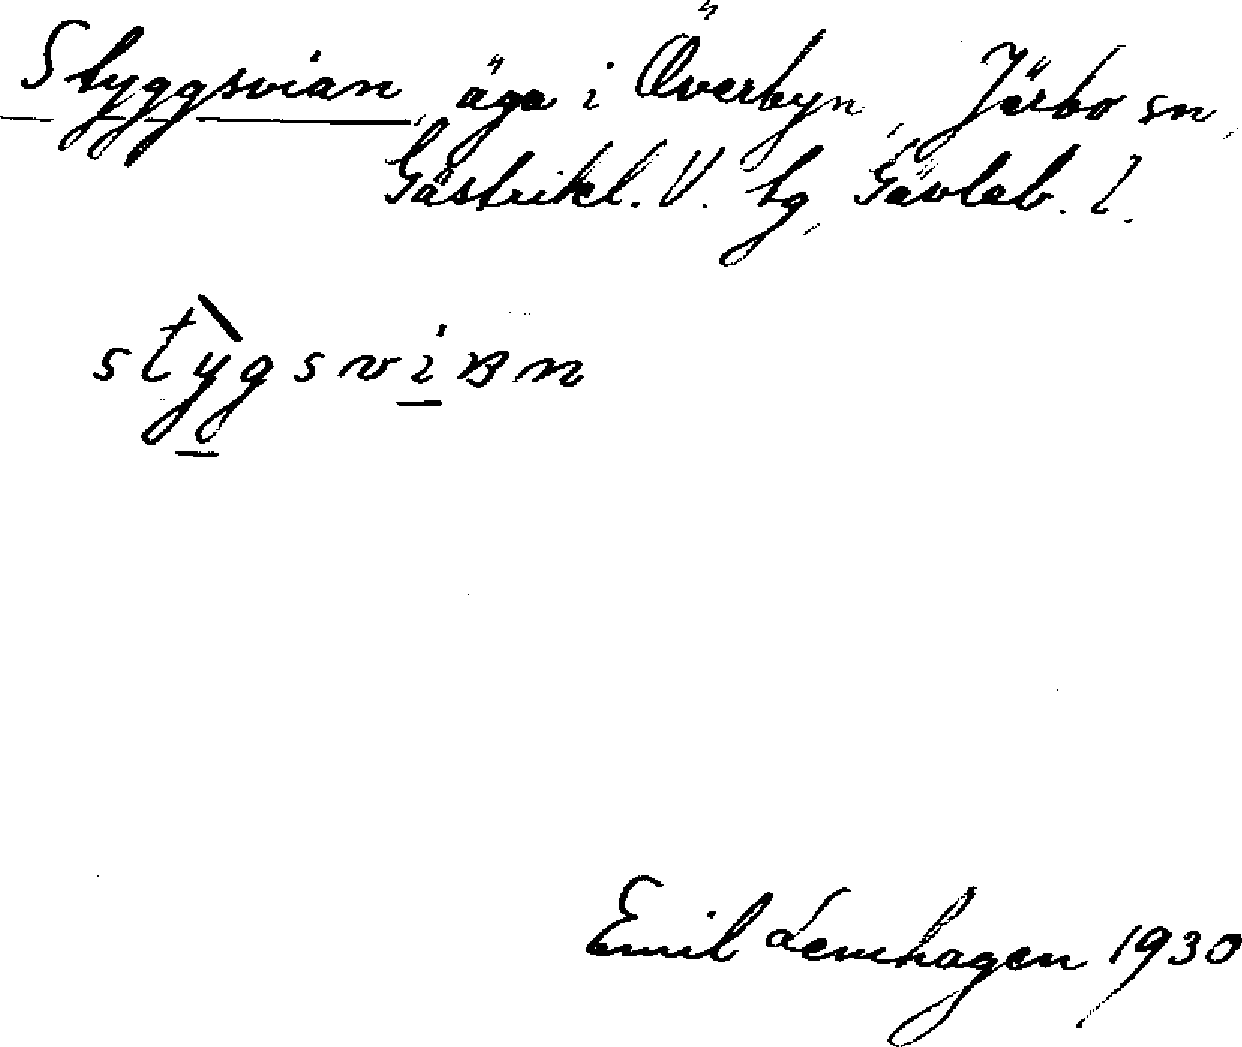 Styggsvian, äga i Överbyn, Järbo sn,
Gästrikl. V. tg, Gävleb. l.
Emil Lemhagen 1930